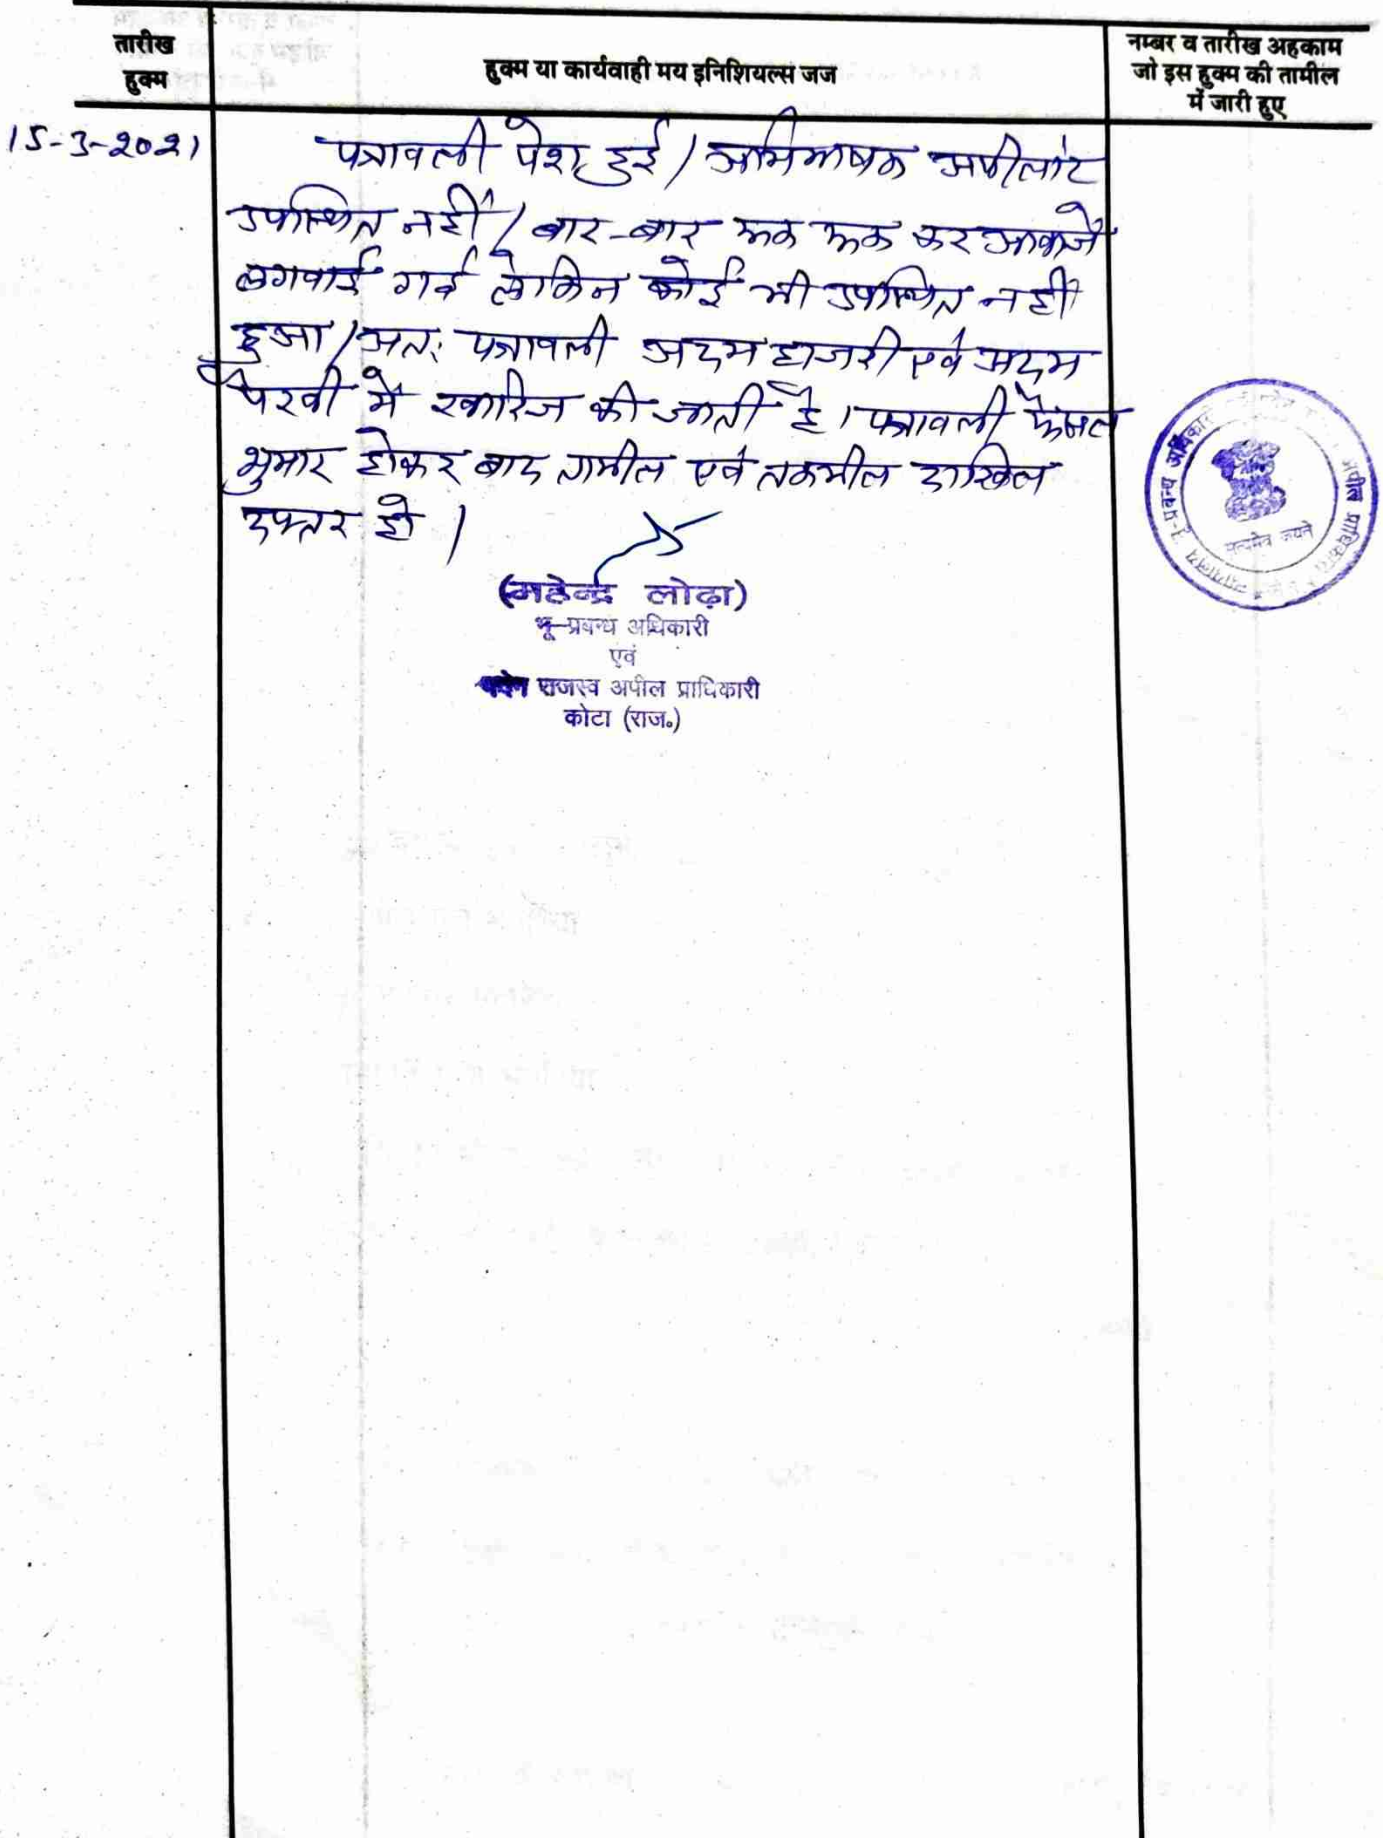 तारीख
हुक्म
हुक्म या कार्यवाही मय इनिशियल्स जज
नम्बर व तारीख अहकाम
जो इस हुक्म की तामील
में जारी हुए
15-3-2021
पत्रावली पेश हुई। अभिभाषक अपीलांट
उपस्थित नहीं। बार-बार रूक रूक कर आवाजें
लगवाई गई लेकिन कोई भी उपस्थित नहीं
हुआ। अतः पत्रावली अदम हाजरी एवं अदम
पैरवी में खारिज की जाती है। पत्रावली फैसल
शुमार होकर बाद तामील एवं तकमील दाखिल
दफ्तर हो।
(महेन्द्र लोढ़ा)
भू-प्रबन्ध अधिकारी
एवं
राजस्व अपील प्राधिकारी
कोटा (राज०)
सत्यमेव जयते